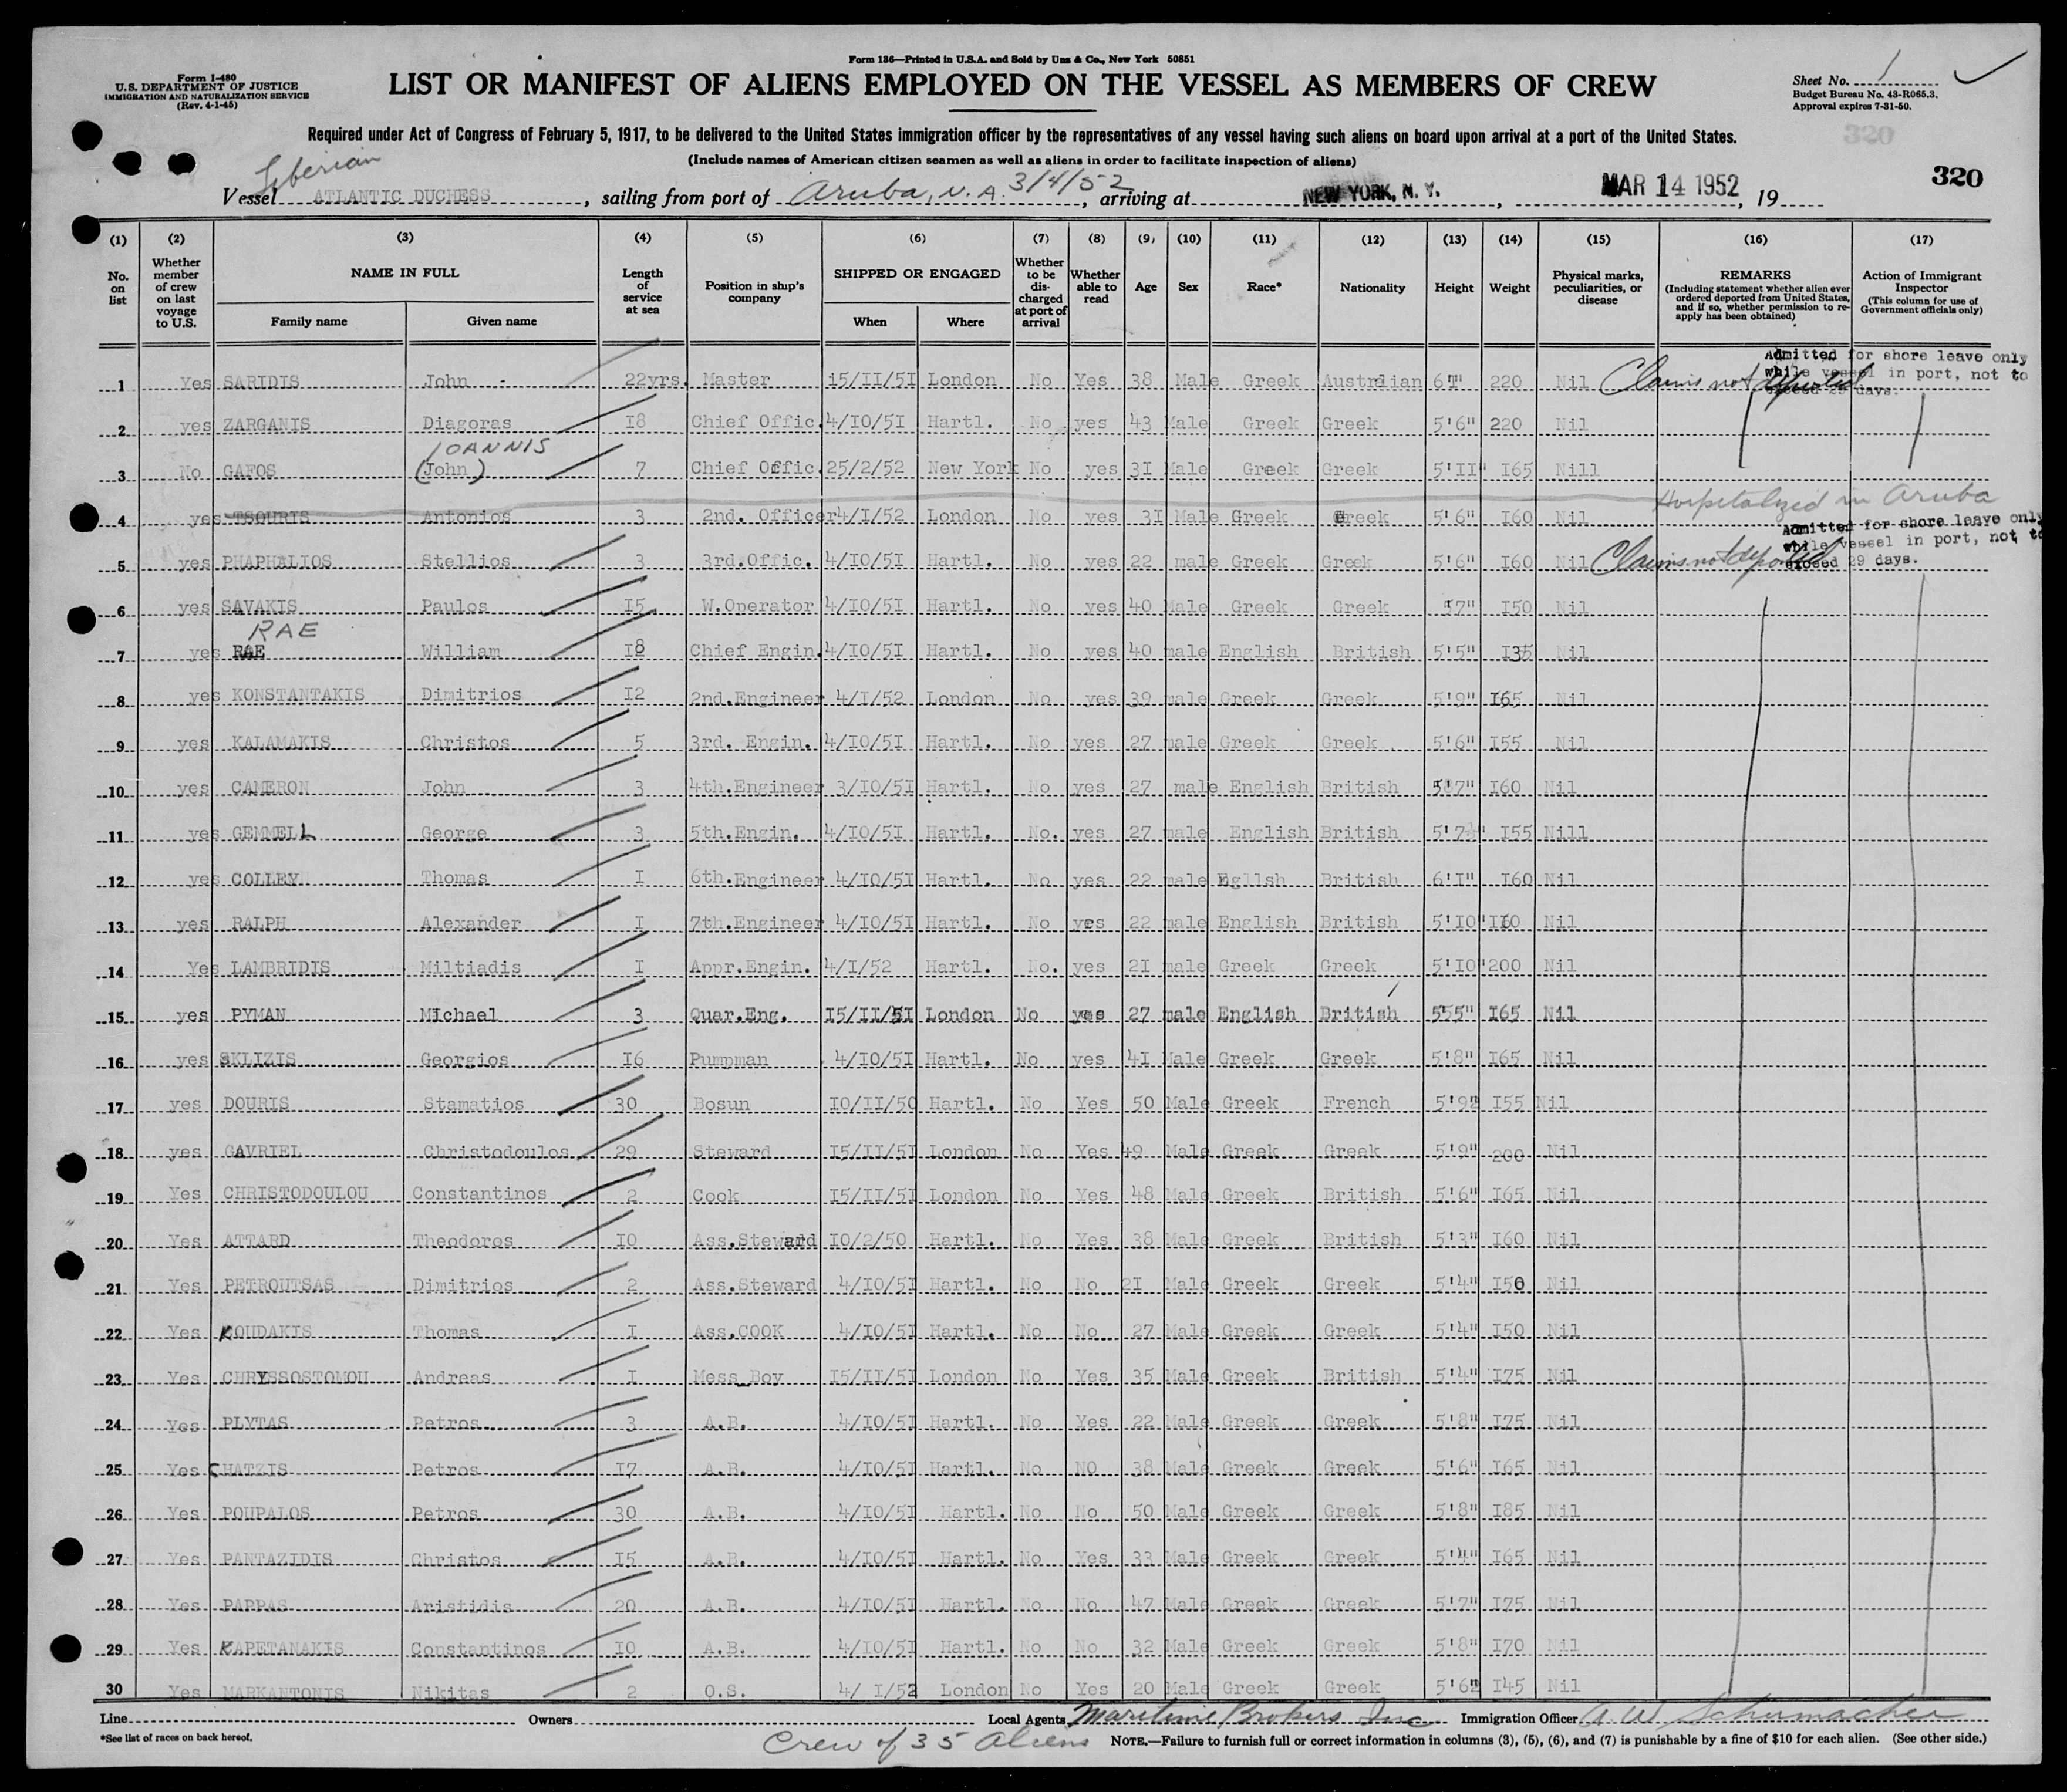 Form 136—Printed in U.S.A. and Sold by Unz & Co., New York 50851
Form I-480
U.S. DEPARTMENT OF JUSTICE
IMMIGRATION AND NATURALIZATION SERVICE
(Rev. 4-1-45)
LIST OR MANIFEST OF ALIENS EMPLOYED ON THE VESSEL AS MEMBERS OF CREW
Sheet No. 1
Budget Bureau No. 43-R065.3.
Approval expires 7-31-50.
Required under Act of Congress of February 5, 1917, to be delivered to the United States immigration officer by the representatives of any vessel having such aliens on board upon arrival at a port of the United States.
320
(Include names of American citizen seamen as well as aliens in order to facilitate inspection of aliens)
Liberian
320
Vessel ATLANTIC DUCHESS, sailing from port of Aruba, N.A. 3/4/52, arriving at NEW YORK, N. Y., MAR 14 1952, 19
(1) (2) (3) (4) (5) (6) (7) (8) (9) (10) (11) (12) (13) (14) (15) (16) (17)
No. on list
Whether member of crew on last voyage to U.S.
NAME IN FULL
Family name
Given name
Length of service at sea
Position in ship's company
SHIPPED OR ENGAGED
When
Where
Whether to be discharged at port of arrival
Whether able to read
Age
Sex
Race*
Nationality
Height
Weight
Physical marks, peculiarities, or disease
REMARKS
(Including statement whether alien ever ordered deported from United States, and if so, whether permission to reapply has been obtained)
Action of Immigrant Inspector
(This column for use of Government officials only)
Admitted for shore leave only
while vessel in port, not to
exceed 29 days.
1 Yes SARIDIS John - 22yrs. Master 15/II/5I London No Yes 38 Male Greek Australian 220 Nil Claims not deported
2 yes ZARGANIS Diagoras I8 Chief Offic. 4/IO/5I Hartl. No yes 43 Male Greek Greek 5'6" 220 Nil
IOANNIS
3 No GAFOS (John) 7 Chief Offic. 25/2/52 New York No yes 3I Male Greek Greek 5'II" I65 Nill
Hospitalized in Aruba
4 yes TSOURIS Antonios 3 2nd. Officer 4/I/52 London No yes 3I Male Greek Greek 5'6" I60 Nil
Admitted for shore leave only
while vessel in port, not to
exceed 29 days.
5 yes PHAPHALIOS Stellios 3 3rd.Offic. 4/IO/5I Hartl. No yes 22 male Greek Greek 5'6" I60 Nil Claims not deported
6 yes SAVAKIS Paulos I5 W.Operator 4/IO/5I Hartl. No yes 40 Male Greek Greek 57" I50 Nil
RAE
7 yes RAE William I8 Chief Engin. 4/IO/5I Hartl. No yes 40 male English British 5'5" I35 Nil
8 yes KONSTANTAKIS Dimitrios I2 2nd.Engineer 4/I/52 London No yes 39 male Greek Greek 5'9" I65 Nil
9 yes KALAMAKIS Christos 5 3rd. Engin. 4/IO/5I Hartl. No yes 27 male Greek Greek 5'6" I55 Nil
10 yes CAMERON John 3 4th.Engineer 3/IO/5I Hartl. No yes 27 male English British 5'7" I60 Nil
11 yes GEMMELL George 3 5th.Engin. 4/IO/5I Hartl. No. yes 27 male English British 5'7½" I55 Nill
12 yes COLLEY Thomas I 6th.Engineer 4/IO/5I Hartl. No yes 22 male Engllsh British 6'I" I60 Nil
13 yes RALPH Alexander I 7th.Engineer 4/IO/5I Hartl. No yes 22 male English British 5'IO" Nil
14 Yes LAMBRIDIS Miltiadis I Appr.Engin. 4/I/52 Hartl. No. yes 2I male Greek Greek 5'IO" 200 Nil
15 yes PYMAN Michael 3 Quar.Eng. I5/II/5I London No yes 27 male English British 555" I65 Nil
16 yes SKLIZIS Georgios I6 Pumpman 4/IO/5I Hartl. No yes 4I Male Greek Greek 5'8" I65 Nil
17 yes DOURIS Stamatios 30 Bosun IO/II/50 Hartl. No Yes 50 Male Greek French 5'92 I55 Nil
18 yes GAVRIEL Christodoulos 29 Steward I5/II/5I London No Yes 49 Male Greek Greek 5'9" 200 Nil
19 Yes CHRISTODOULOU Constantinos 2 Cook I5/II/5I London No Yes 48 Male Greek British 5'6" I65 Nil
20 Yes ATTARD Theodoros IO Ass.Steward IO/2/50 Hartl. No Yes 38 Male Greek British 5'3" I60 Nil
21 Yes PETROUTSAS Dimitrios 2 Ass.Steward 4/IO/5I Hartl. No No 2I Male Greek Greek 5'4" I50 Nil
22 Yes KOUDAKIS Thomas I Ass.COOK 4/IO/5I Hartl. No No 27 Male Greek Greek 5'4" I50 Nil
23 Yes CHRYSSOSTOMOU Andreas I Mess Boy I5/II/5I London No Yes 35 Male Greek British 5'4" I75 Nil
24 Yes PLYTAS Petros 3 A.B. 4/IO/5I Hartl. No Yes 22 Male Greek Greek 5'8" I75 Nil
25 Yes CHATZIS Petros I7 A.B. 4/IO/5I Hartl. No NO 38 Male Greek Greek 5'6" I65 Nil
26 Yes POUPALOS Petros 30 A.B. 4/IO/5I Hartl. No No 50 Male Greek Greek 5'8" I85 Nil
27 Yes PANTAZIDIS Christos I5 A.B. 4/IO/5I Hartl. No Yes 33 Male Greek Greek 5'4" I65 Nil
28 Yes PAPPAS Aristidis 20 A.B. 4/IO/5I Hartl. No No 47 Male Greek Greek 5'7" I75 Nil
29 Yes KAPETANAKIS Constantinos IO A.B. 4/IO/5I Hartl. No No 32 Male Greek Greek 5'8" I70 Nil
30 Yes MARKANTONIS Nikitas 2 O.S. 4/ I/52 London No Yes 20 Male Greek Greek 5'62 I45 Nil
Line Owners Local Agents Maritime Brokers Inc. Immigration Officer A. W. Schumacher
*See list of races on back hereof.
Crew of 35 Aliens
NOTE.—Failure to furnish full or correct information in columns (3), (5), (6), and (7) is punishable by a fine of $10 for each alien. (See other side.)